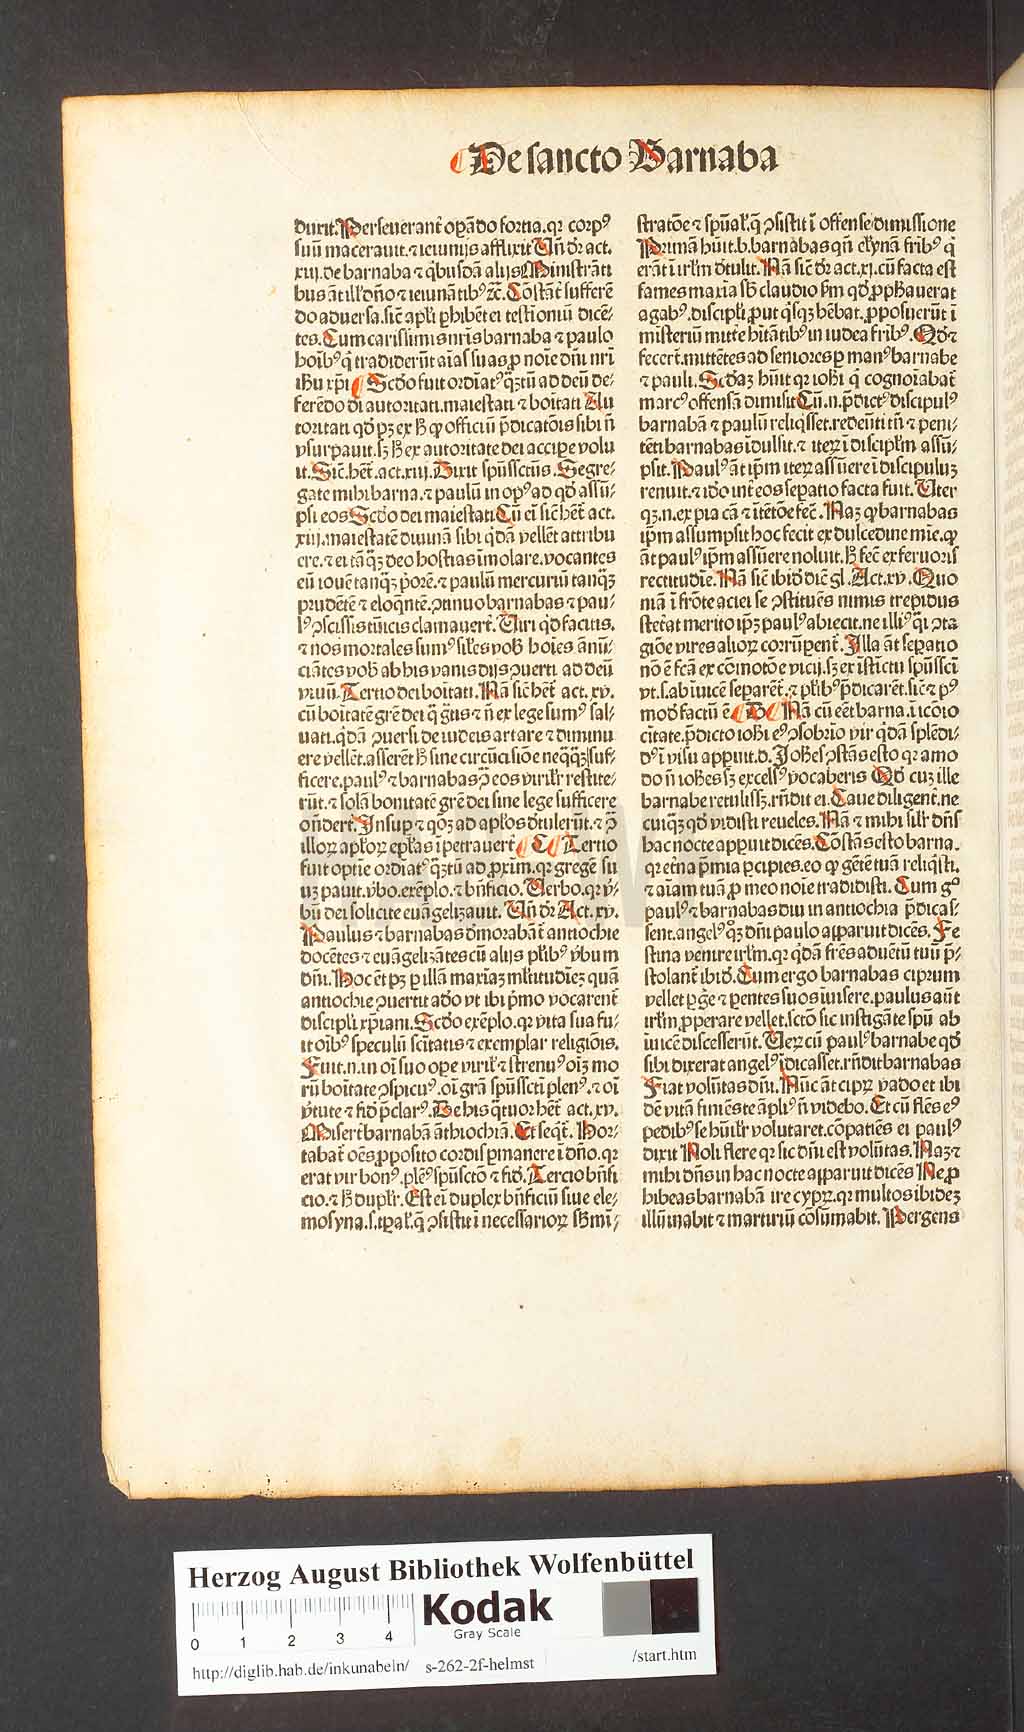 De sancto Barnaba
duxit. Perseuerant̄ opādo fortia. qꝛ corpꝰ
suū macerauit. ⁊ ieiunijs afflixit Vñ dꝛ act.
xiij. de barnaba ⁊ qͥbusdā alijs Ministrāti
bus āt illꝭ dño ⁊ ieiunātibꝰ ⁊c̄. Cōstāt̄ sufferē
do aduersa. sic̄ apłi ꝑhibēt ei testīoniū dicē⸗
tes. Cum carissimis nr̄is barnaba ⁊ paulo
hoībꝰ q̇ tradiderūt aīas suas ꝓ noīe dñi nr̄i
ihū xp̄i Scḋo fuit ordīatꝰ qͣꝫtū ad deū de⸗
ferēdo di autoritati. maiestati ⁊ boītati Au
toritati qd̓ pꝫ ex ħ ꝙ officiū p̄dicatōis sibi ñ
vsurpauit. sꝫ ħ ex autoritate dei accipe volu
it. Sic̄ het̄. act. xiij. Dixit spūssctūs. Segre⸗
gate mihi barna. ⁊ paulū in opꝰ ad qd̓ assū⸗
psi eos Scḋo dei maiestati. Cū ei sic̄ het̄ act.
xiij. maiestatē diuinā sibi qͥdā vellēt attribu
ere. ⁊ ei tāqͣꝫ deo hostias īmolare. vocantes
eū iouē tanqͣꝫ p̓orē. ⁊ paulū mercuriū tanqͣꝫ
prudētē ⁊ eloqͣntē. ꝯtinuo barnabas ⁊ pau⸗
lꝰ ꝯscissis tūicis clamauert̄. Viri qͥd facitis.
⁊ nos mortales sumꝰ siłes vob̓ hoīes ānū⸗
ciātes vob̓ ab his vanis dijs ꝯuerti ad deū
viuū. Tertio dei boītati. Nā sic̄ het̄ act. xv.
cū boītatē gr̄e dei qͣ gͣtis ⁊ ñ ex lege sumꝰ sal⸗
uati. qͥdā ꝯuersi de iudeis artare ⁊ diminu
ere vellēt. asserēt ħ sine circūcisiōe neqͣqͣꝫ suf⸗
ficere. paulꝰ ⁊ barnabas ꝯ̄ eos virilr̄ restite⸗
rūt. ⁊ solā bonitatē gr̄e dei sine lege sufficere
oñdert̄. Insuꝑ ⁊ qōꝫ ad apłos dt̓ulerūt. ⁊ ꝯ̄
illoꝝ apłoꝝ epłas īpetrauert̄ C Tertio
fuit optīe ordīatꝰ qͣꝫtū ad ꝓxīm. qꝛ gregē su
uꝫ pauit. v̓bo. exēplo. ⁊ bn̄ficio. Verbo. qꝛ v̓⸗
bū dei solicite euāgelizauit. Vñ dꝛ Act. xv.
Paulus ⁊ barnabas dm̓orabāt̄ antiochie
docētes ⁊ euāgelizātes cū alijs płibꝰ v̓bum
dñi. Hoc et̄ pꝫ ꝑ illā maxīaꝫ ml̄titudīeꝫ quā
antiochie ꝯuertit adꝰo vt ibi p̄mo vocarent̄
discipli xp̄iani. Scḋo exēplo. qꝛ vita sua fu⸗
it oībꝰ speculū scītatis ⁊ exemplar religiōis.
Fuit. n. in oī suo oꝑe virilr̄ ⁊ strenuꝰ oīꝫ mo
rū boītate ꝯspicuꝰ. oī gr̄a spūsscti plenꝰ. ⁊ oī
v̓tute ⁊ fid̓ p̄clarꝰ. De his qͣtuor het̄ act. xv.
Misert̄ barnabā āthiochiā. Et seqt̄. Hor⸗
tabat̄ oēs ꝓposito cordis ꝑmanere ī dño. qꝛ
erat vir bonꝰ. plēꝰ spūsctō ⁊ fid̓. Tercio bn̄fi
cio. ⁊ ħ duplr̄. Est ei duplex bn̄ficiū siue ele⸗
mosyna. s. tꝑał. q̄ ꝯsistit ī necessarioꝝ sb̓mī⸗
stratōe ⁊ spūał. q̄ ꝯsistit ī offense dimissione
Primā hūit. b. barnabas qñ elꝰynā frībꝰ q̇
erāt ī irłm dt̓ulit. Nā sic̄ dꝛ act. xj. cū facta est
fames maxīa sb̓ claudio ẜm qd̓ ꝓphauerat
agabꝰ. discipli ꝓut qͥsqꝫ hēbat. ꝓposuerūt ī
misteriū mitte hītātibꝰ in iudea fribꝰ. Qd̓ ⁊
fecert̄. mittētes ad seniores ꝑ manꝰ barnabe
⁊ pauli. Scḋaꝫ hūit qꝛ ioħi q̇ cognoīabat̄
marcꝰ offensā dimisit Cū. n. p̄dictꝰ discipulꝰ
barnabā ⁊ paulū reliqͥsset. redeūti tn̄ ⁊ peni⸗
tēti barnabas īdulsit. ⁊ iteꝝ ī discipłm assū⸗
psit. Paulꝰ āt ip̄m iteꝝ assūere ī discipuluꝫ
renuit. ⁊ idꝰo int̄ eos sepatio facta fuit. Vter
qꝫ. n. ex pia cā ⁊ itētōe fec̄. Naꝫ ꝙ barnabas
ip̄m assumpsit hoc fecit ex dulcedine mīe. ꝙ
āt paulꝰ ip̄m assūere noluit. ħ fec̄ ex feruoris
rectitudīe. Nā sic̄ ibid̓ dic̄ gl. Act. xv. Quo
niā ī frōte aciei se ꝯstituēs nimis trepidus
stetat merito ip̄ꝫ paulꝰ abiecit. ne illiꝰ qͣsi ꝯta
giōe vires alioꝝ corrūpent̄. Illa āt sepatio
nō ē fc̄a ex cōmotōe vicij. sꝫ ex īstictu spūsscti
vt. s. ab īuicē separēt̄. ⁊ płibꝰ p̄dicarēt. sic̄ ⁊ pꝰ
mod̓ factū ē D Nā cū eēt barna. ī icōio
cītate. p̄dicto ioħi eꝰ ꝯsobrīo vir qͥdā splēdi⸗
dꝰ ī visu appuit. d. Johēs ꝯstās esto qꝛ amo
do ñ iohēs sꝫ excelsꝰ vocaberis Qd̓ cuꝫ ille
barnabe retulissꝫ. rn̄dit ei. Caue diligent̄. ne
cuiqͣꝫ qd̓ vidisti reueles. Nā ⁊ mihi silr̄ dñs
hac nocte appuit dicēs. Cōstās esto barna.
qꝛ et̄na p̄mia ꝑcipies. eo ꝙ gētē tuā reliqͥsti.
⁊ aīam tuā ꝓ meo noīe tradidisti. Cum gͦ
paulꝰ ⁊ barnabas diu in antiochia p̄dicas⸗
sent. angelꝰ qͦꝫ dñi paulo apparuit dicēs. Fe
stina venire irłm. qꝛ qͥdā frēs aduētū tuū p̄⸗
stolant̄ ibid̓. Cum ergo barnabas ciprum
vellet pgͤe ⁊ pentes suos īuisere. paulus aūt
irłm ꝓperare vellet. sctō sic instigāte spū ab
īuicē discesserūt. Veꝝ cū paulꝰ barnabe qd̓
sibi dixerat angelꝰ īdicasset. rn̄dit barnabas
Fiat volūtas dñi. Nūc āt cipꝝ vado et ibi
dē vitā finiēs te āpliꝰ ñ videbo. Et cū flēs eꝰ
pedibꝰ se hūilr̄ volutaret. cōpatiēs ei paulꝰ
dixit Noli flere qꝛ sic dñi est volūtas. Naꝫ ⁊
mihi dñs in hac nocte apparuit dicēs Ne ꝓ
hibeas barnabā ire cypꝝ. qꝛ multos ibideꝫ
illūinabit ⁊ martiriū cōsūmabit. Pergens
Herzog August Bibliothek Wolfenbüttel
0 1 2 3 4
Kodak
Gray Scale
http://diglib.hab.de/inkunabeln/ s-262-2f-helmst /start.htm